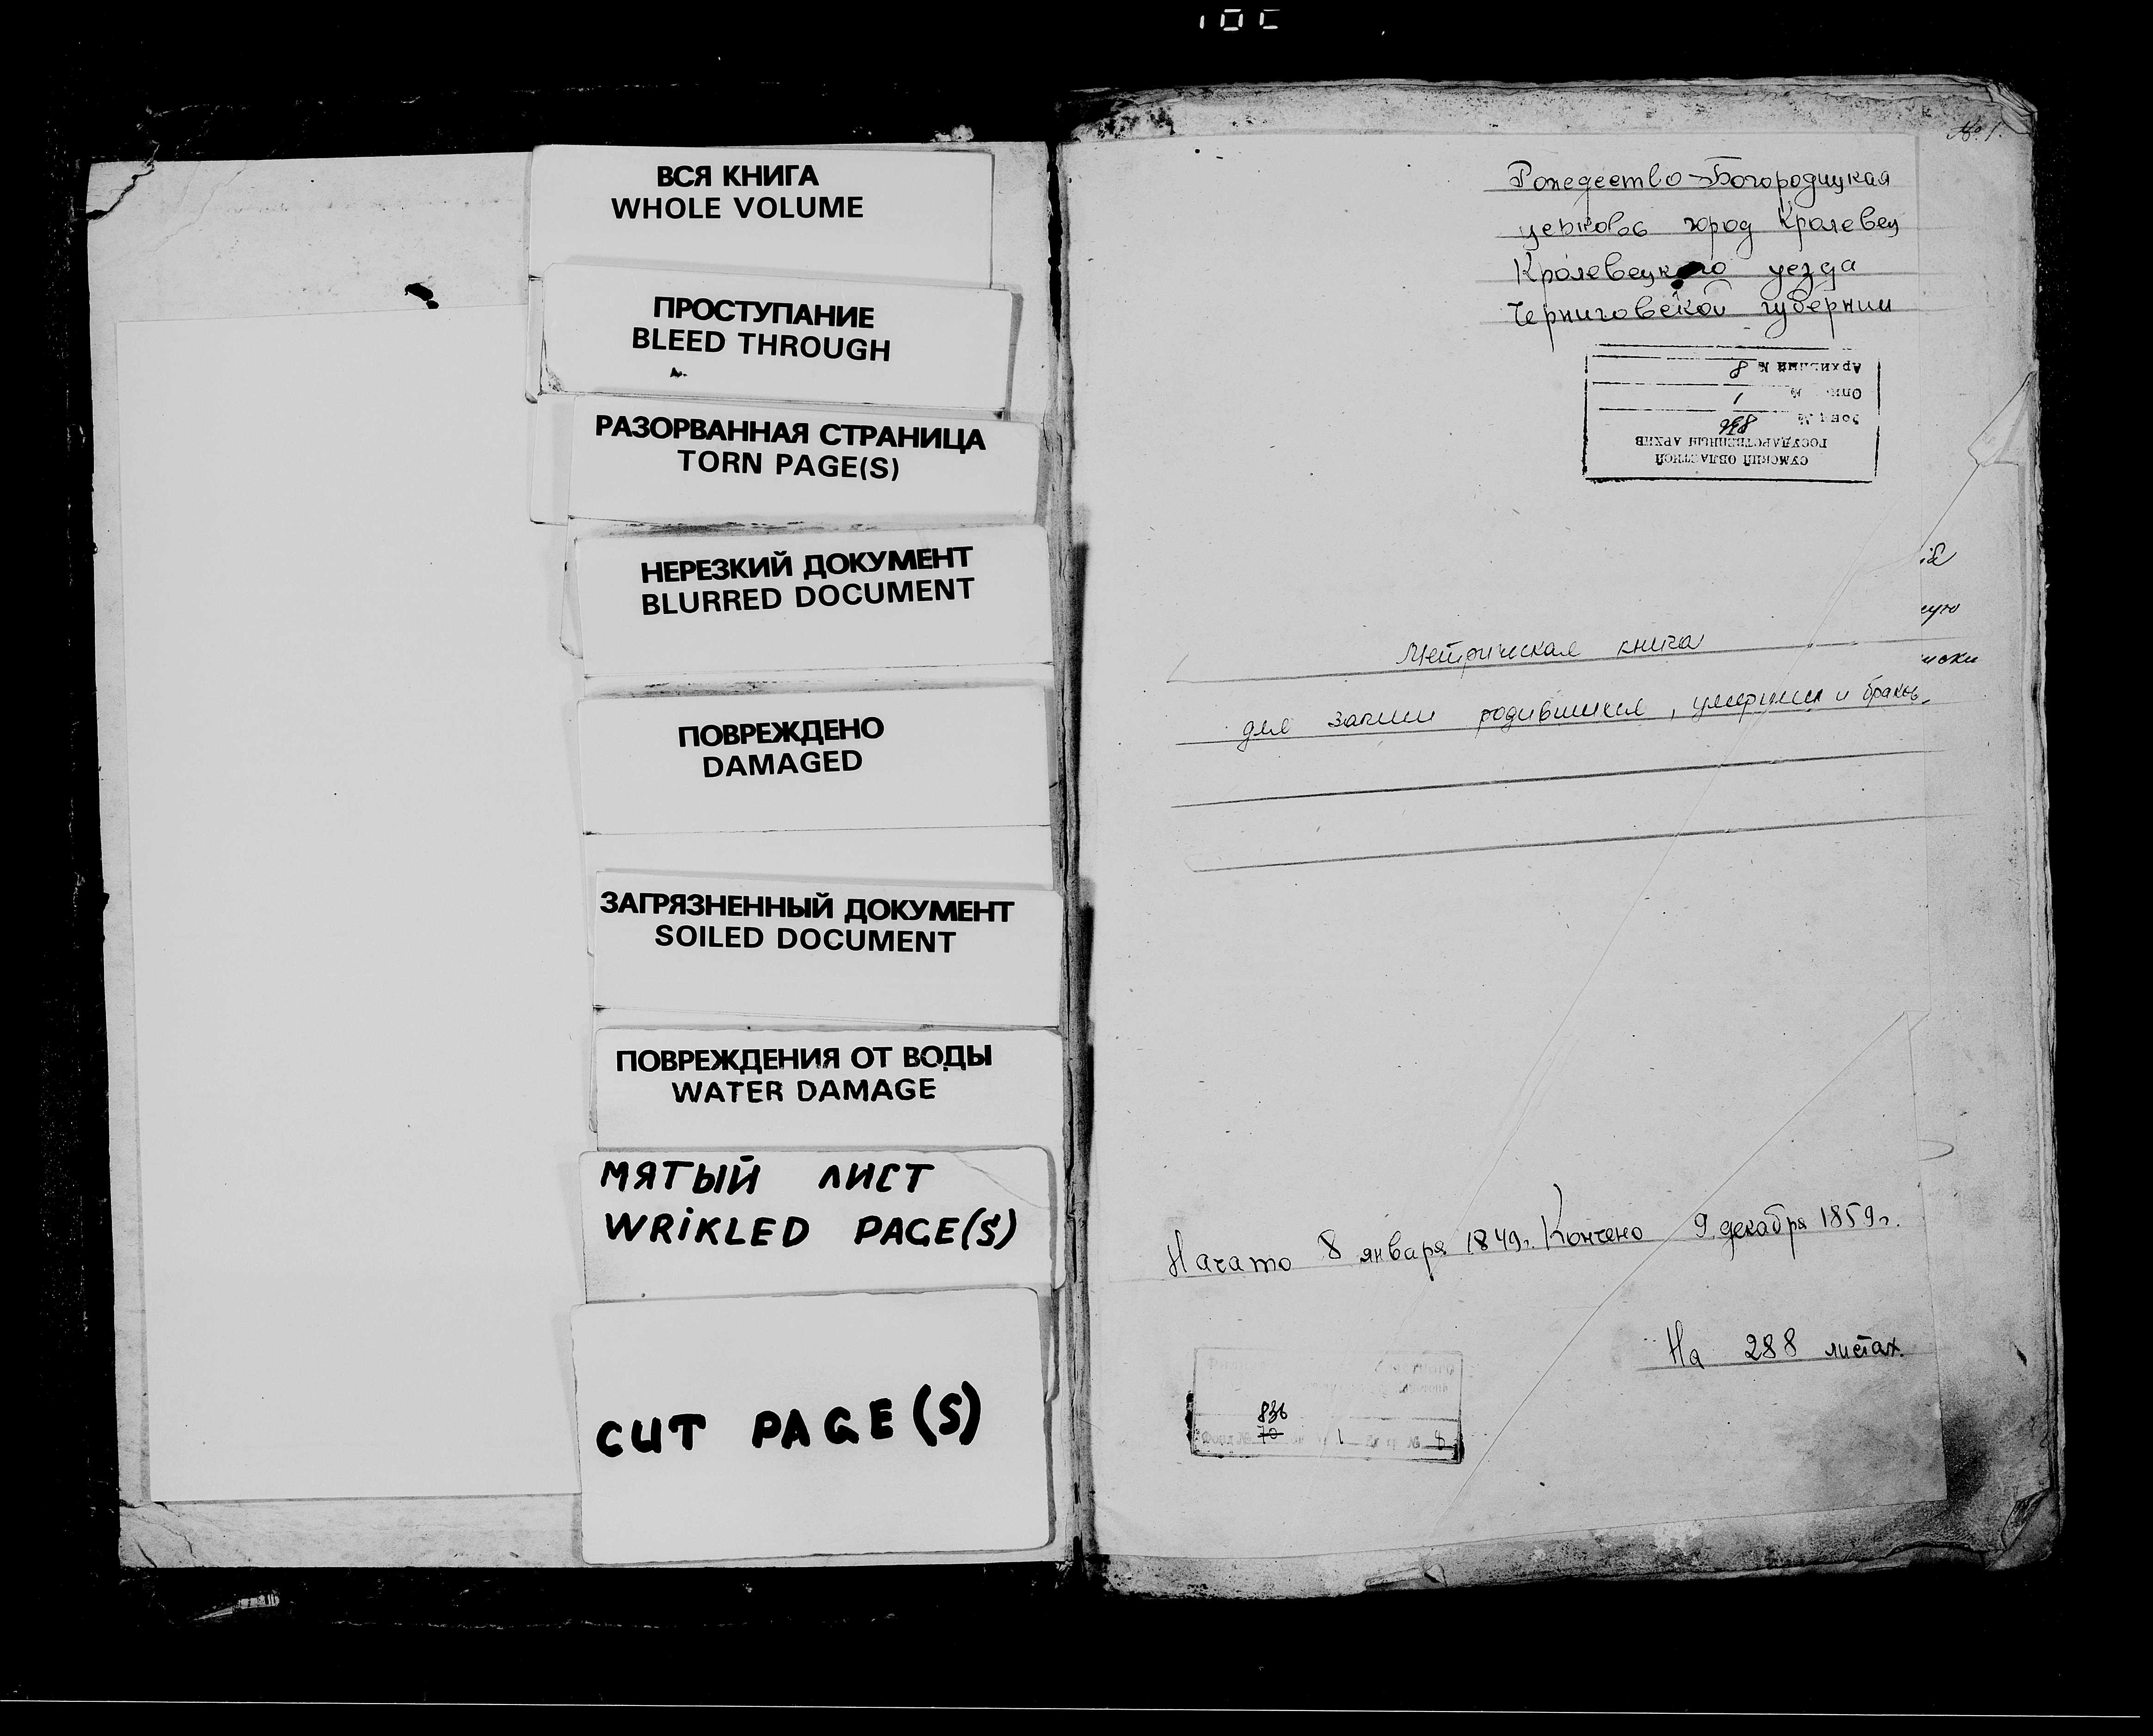 ВСЯ КНИГА
WHOLE VOLUME
ПРОСТУПАНИЕ
BLEED THROUGH
РАЗОРВАННАЯ СТРАНИЦА
TORN PAGE(S)
НЕРЕЗКИЙ ДОКУМЕНТ
BLURRED DOCUMENT
ПОВРЕЖДЕНО
DAMAGED
ЗАГРЯЗНЕННЫЙ ДОКУМЕНТ
SOILED DOCUMENT
ПОВРЕЖДЕНИЯ ОТ ВОДЫ
WATER DAMAGE
МЯТЫЙ ЛИСТ
WRIKLED PAGE(S)
CUT PAGE(S)
№ 1
Рождество-Богородицкая
церковь город Кролевец
Кролевецкого уезда
Черниговской губернии
СУМСКИЙ ОБЛАСТНОЙ
ГОСУДАРСТВЕННЫЙ АРХИВ
Фонд № 836
Опись № 1
Архивный № 8
Метрическая книга
для записи родившихся, умерших и браков.
Начато 8 января 1849г. Кончено 9 декабря 1859г.
На 288 листах.
836
Фонд № 70 1 № 8